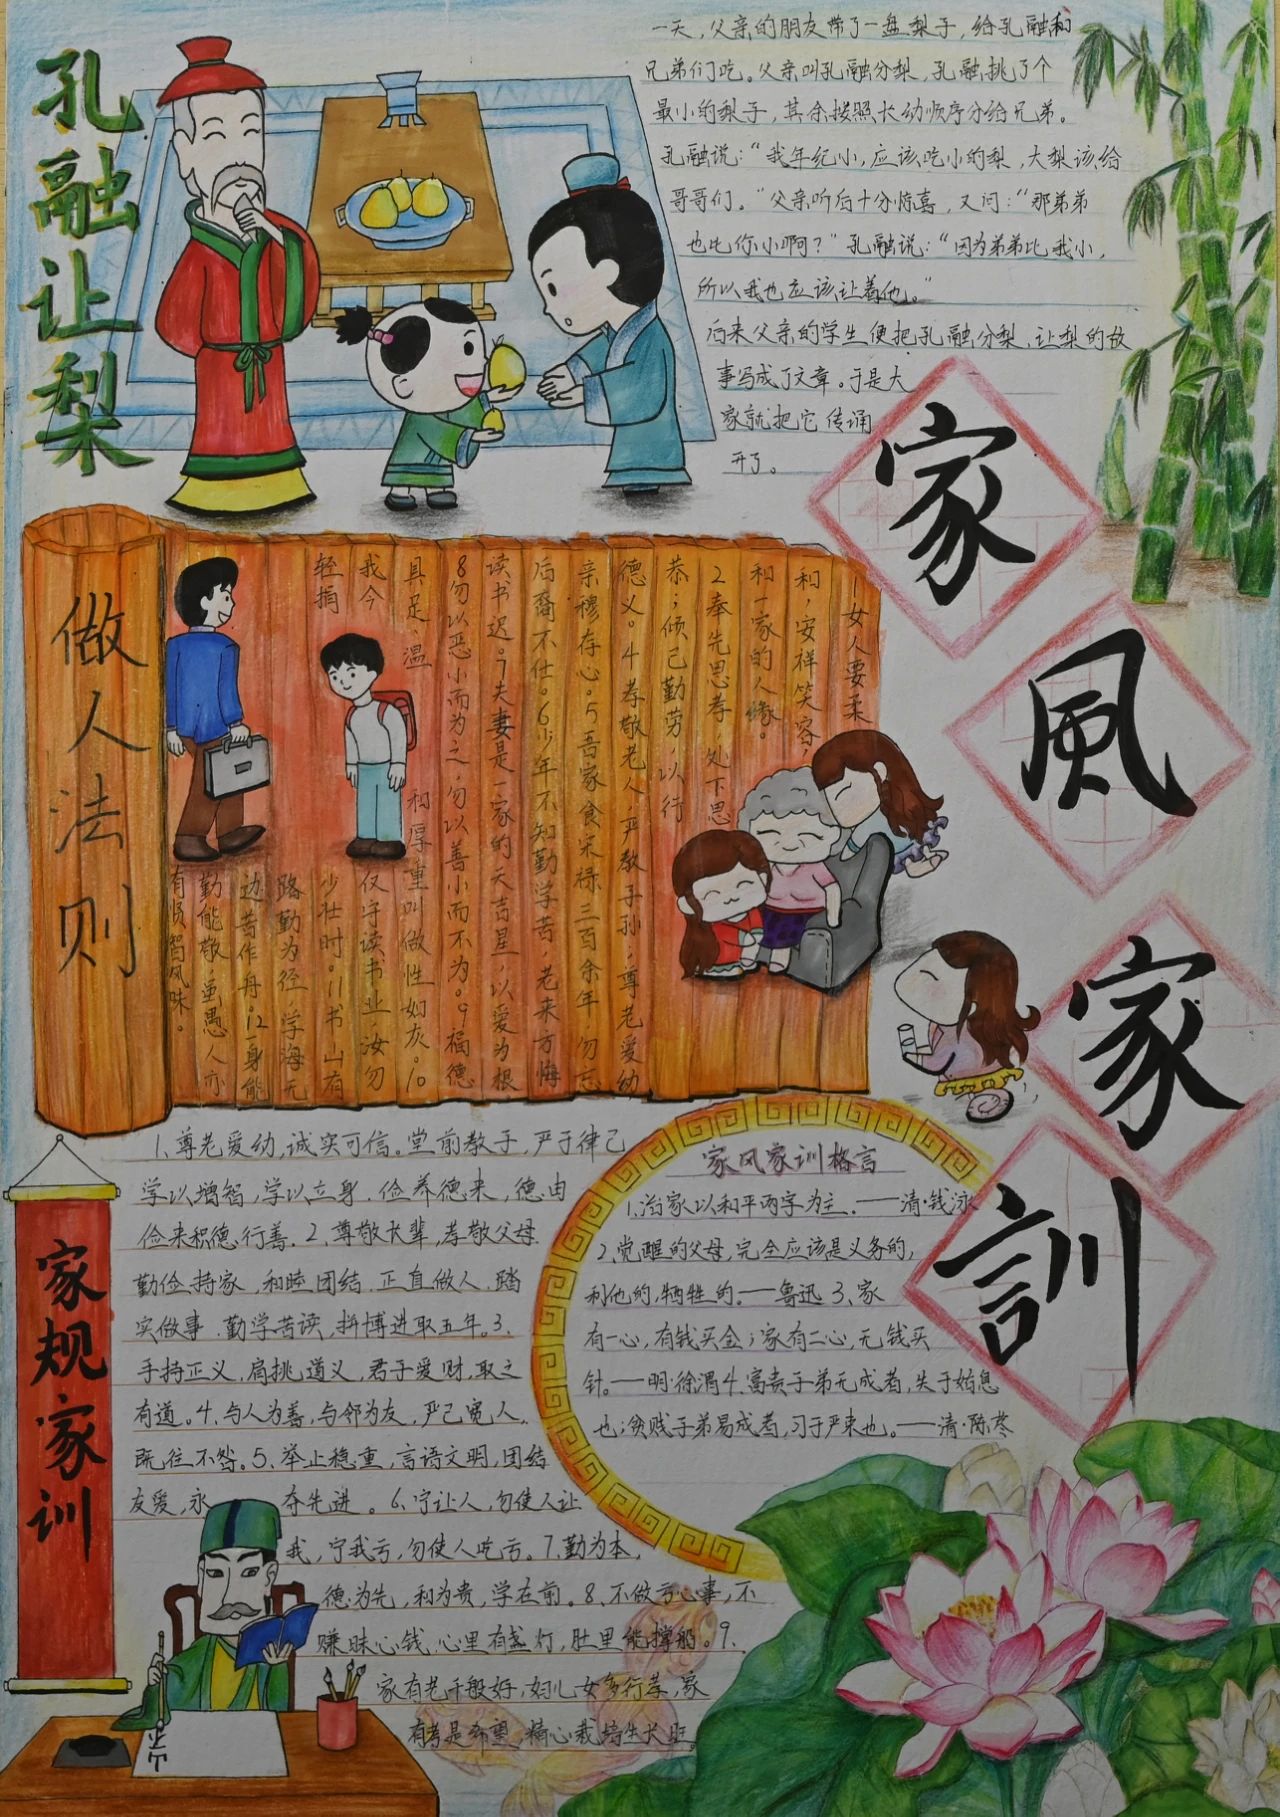 孔融让梨
一天，父亲的朋友带了一盘梨子，给孔融和
兄弟们吃。父亲叫孔融分梨，孔融挑了个
最小的梨子，其余按照长幼顺序分给兄弟。
孔融说：“我年纪小，应该吃小的梨，大梨该给
哥哥们。”父亲听后十分惊喜，又问：“那弟弟
也比你小啊？”孔融说：“因为弟弟比我小，
所以我也应该让着他。”
后来父亲的学生便把孔融分梨，让梨的故
事写成了文章。于是大
家就把它传诵
开了。
家
風
家
訓
做人法则
1女人要柔
和，安祥笑容，
和一家的人缘。
2奉先思孝，处下思
恭；倾己勤劳，以行
德义。4孝敬老人，严教子孙，尊老爱幼
亲穆存心。5吾家食宋禄三百余年，勿忘
后裔不仕。6少年不知勤学苦，老来方悔
读书迟。7夫妻是一家的天吉星，以爱为根
8勿以恶小而为之，勿以善小而不为。9福德
具足，温和厚重叫做性如灰。10
我今仅守读书业，汝勿
轻捐少壮时。11书山有
路勤为径，学海无
边苦作舟。12一身能
勤能敬，虽愚人亦
有贤智风味。
家规家训
1、尊老爱幼，诚实可信。堂前教子，严于律己
学以增智，学以立身，俭养德来，德由
俭来积德，行善。2、尊敬长辈，孝敬父母
勤俭持家，和睦团结，正直做人，踏
实做事，勤学苦读，拼博进取五年。3、
手持正义，肩挑道义，君子爱财，取之
有道。4、与人为善，与邻为友，严己宽人，
既往不咎。5、举止稳重，言语文明，团结
友爱，永夺先进。6、宁让人，勿使人让
我，宁我亏，勿使人吃亏。7、勤为本，
德为先，和为贵，学在前。8、不做亏心事，不
赚昧心钱，心里有盏灯，肚里能撑船。9、
家有老千般好，妇儿女多行孝，家
有考是希望，精心栽培生长旺。
家风家训格言
1、治家以和平两字为主。——清·钱泳
2、觉醒的父母，完全应该是义务的，
利他的，牺牲的。——鲁迅 3、家
有一心，有钱买金；家有二心，无钱买
针。——明·徐渭 4、富贵子弟无成者，失于姑息
也；贫贱子弟易成者，习于严束也。——清·陈荩